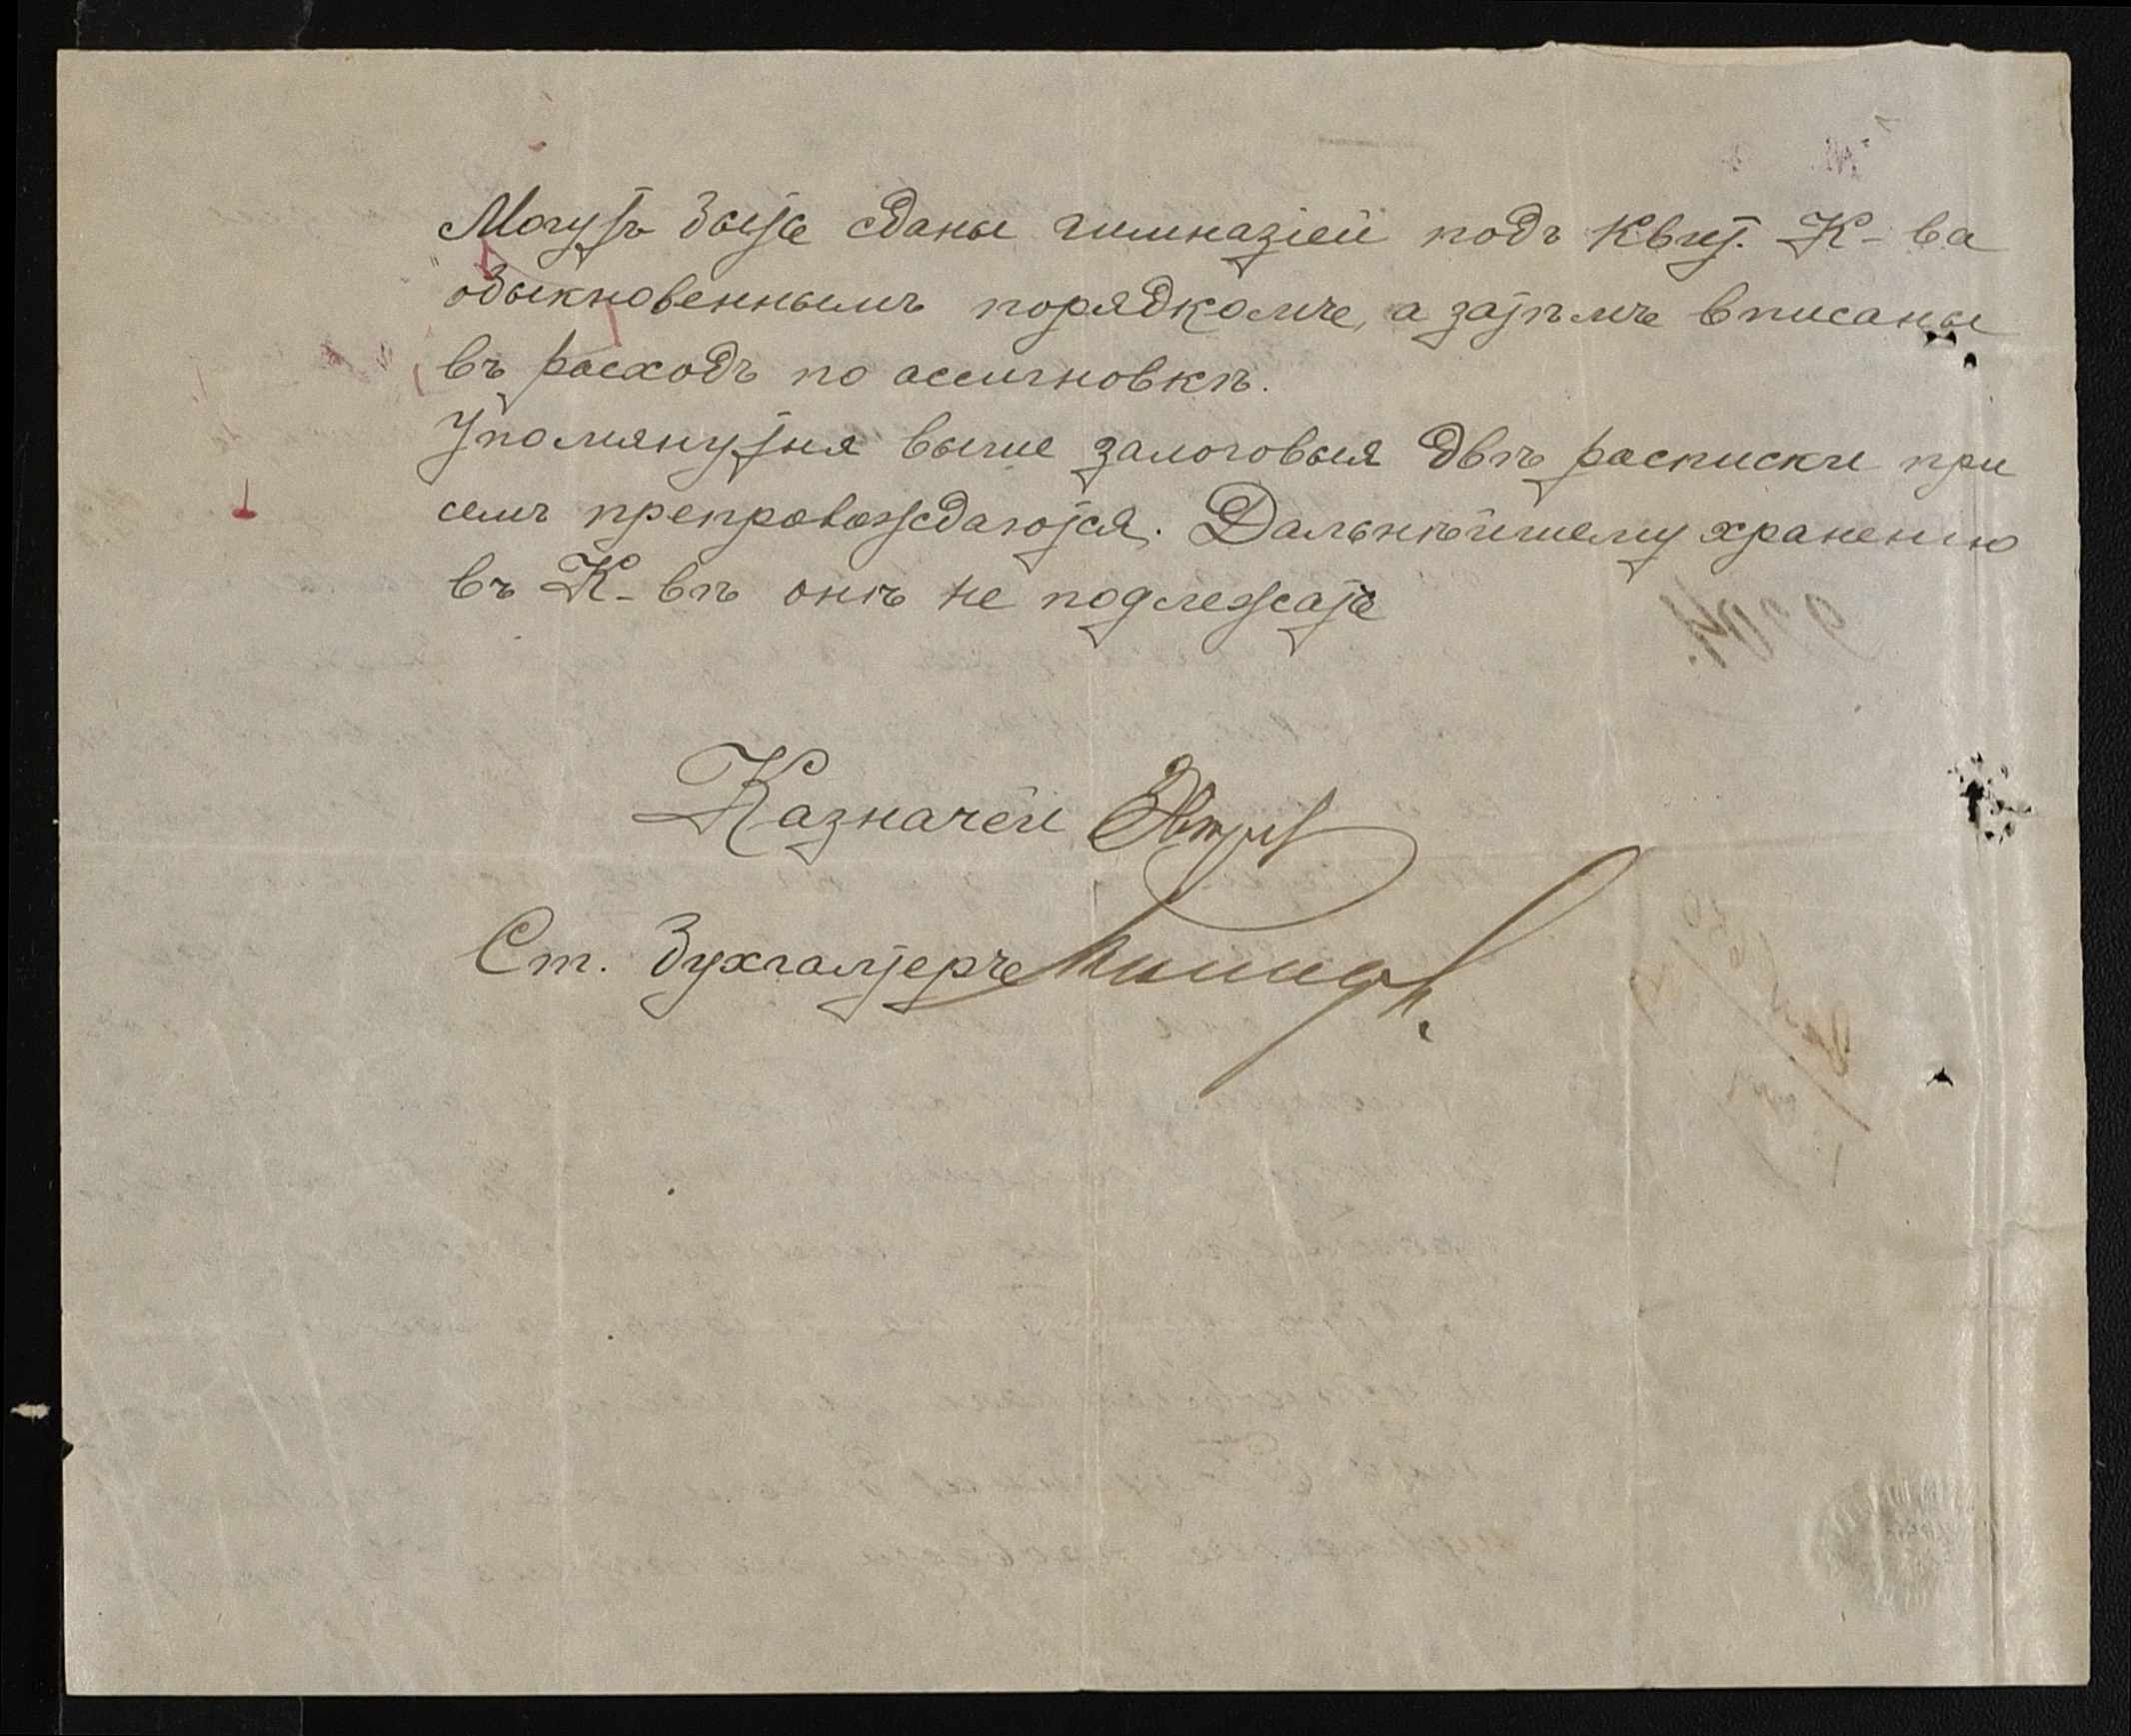 Могутъ быть сданы гимназіей подъ квит. К-ва
обыкновеннымъ порядкомъ, а затѣмъ вписаны
въ расходъ по ассигновкѣ.
Упомянутыя выше залоговыя двѣ расписки при
семъ препровождаются. Дальнѣйшему храненію
въ К-вѣ онѣ не подлежатъ
Казначей
Ст. Бухгалтеръ